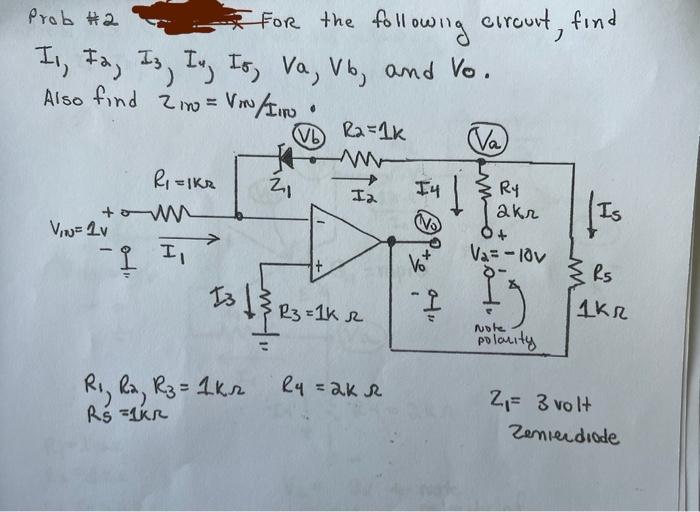 Prob #2 For the following circuit, find
I1, I2, I3, I4, I5, Va, Vb, and Vo.
Also find Zin = Vin/Iin.
Vb R2=1K Va
R1=1KΩ Z1 I2 I4 R4 2kΩ I5
Vo
+
VIN=1V
-
I1
-
+
Vo+
-
+
V2=-10V
-
R5
1KΩ
I3 R3=1KΩ
Note
polarity
R1, R2, R3=1KΩ R4=2KΩ
R5=1KΩ
Z1= 3volt
Zenierdiode